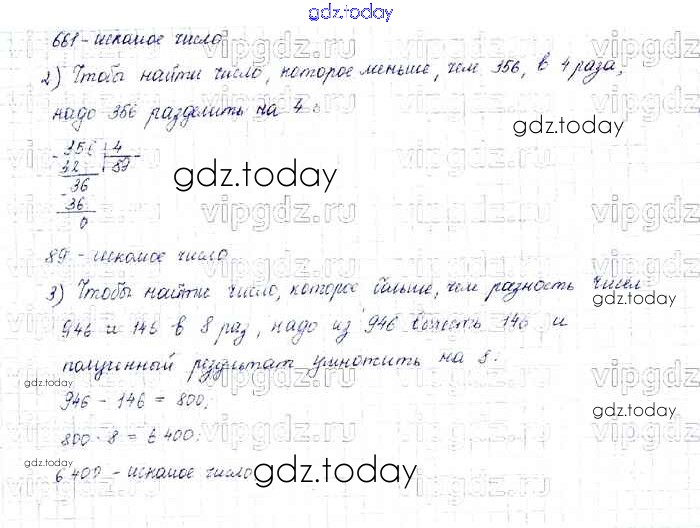 gdz.today
661 - искомое число
2) Чтобы найти число, которое меньше, чем 356, в 4 раза,
надо 356 разделить на 4.
gdz.today
- 356 | 4
32 | 89
gdz.today
36
- 36
0
89 - искомое число
3) Чтобы найти число, которое больше, чем разность чисел
gdz.today
946 и 146 в 8 раз, надо из 946 вычесть 146 и
полученный результат умножить на 8.
gdz.today
946 - 146 = 800;
gdz.today
800 · 8 = 6400;
gdz.today
6400 - искомое число
gdz.today
vipgdz.ru